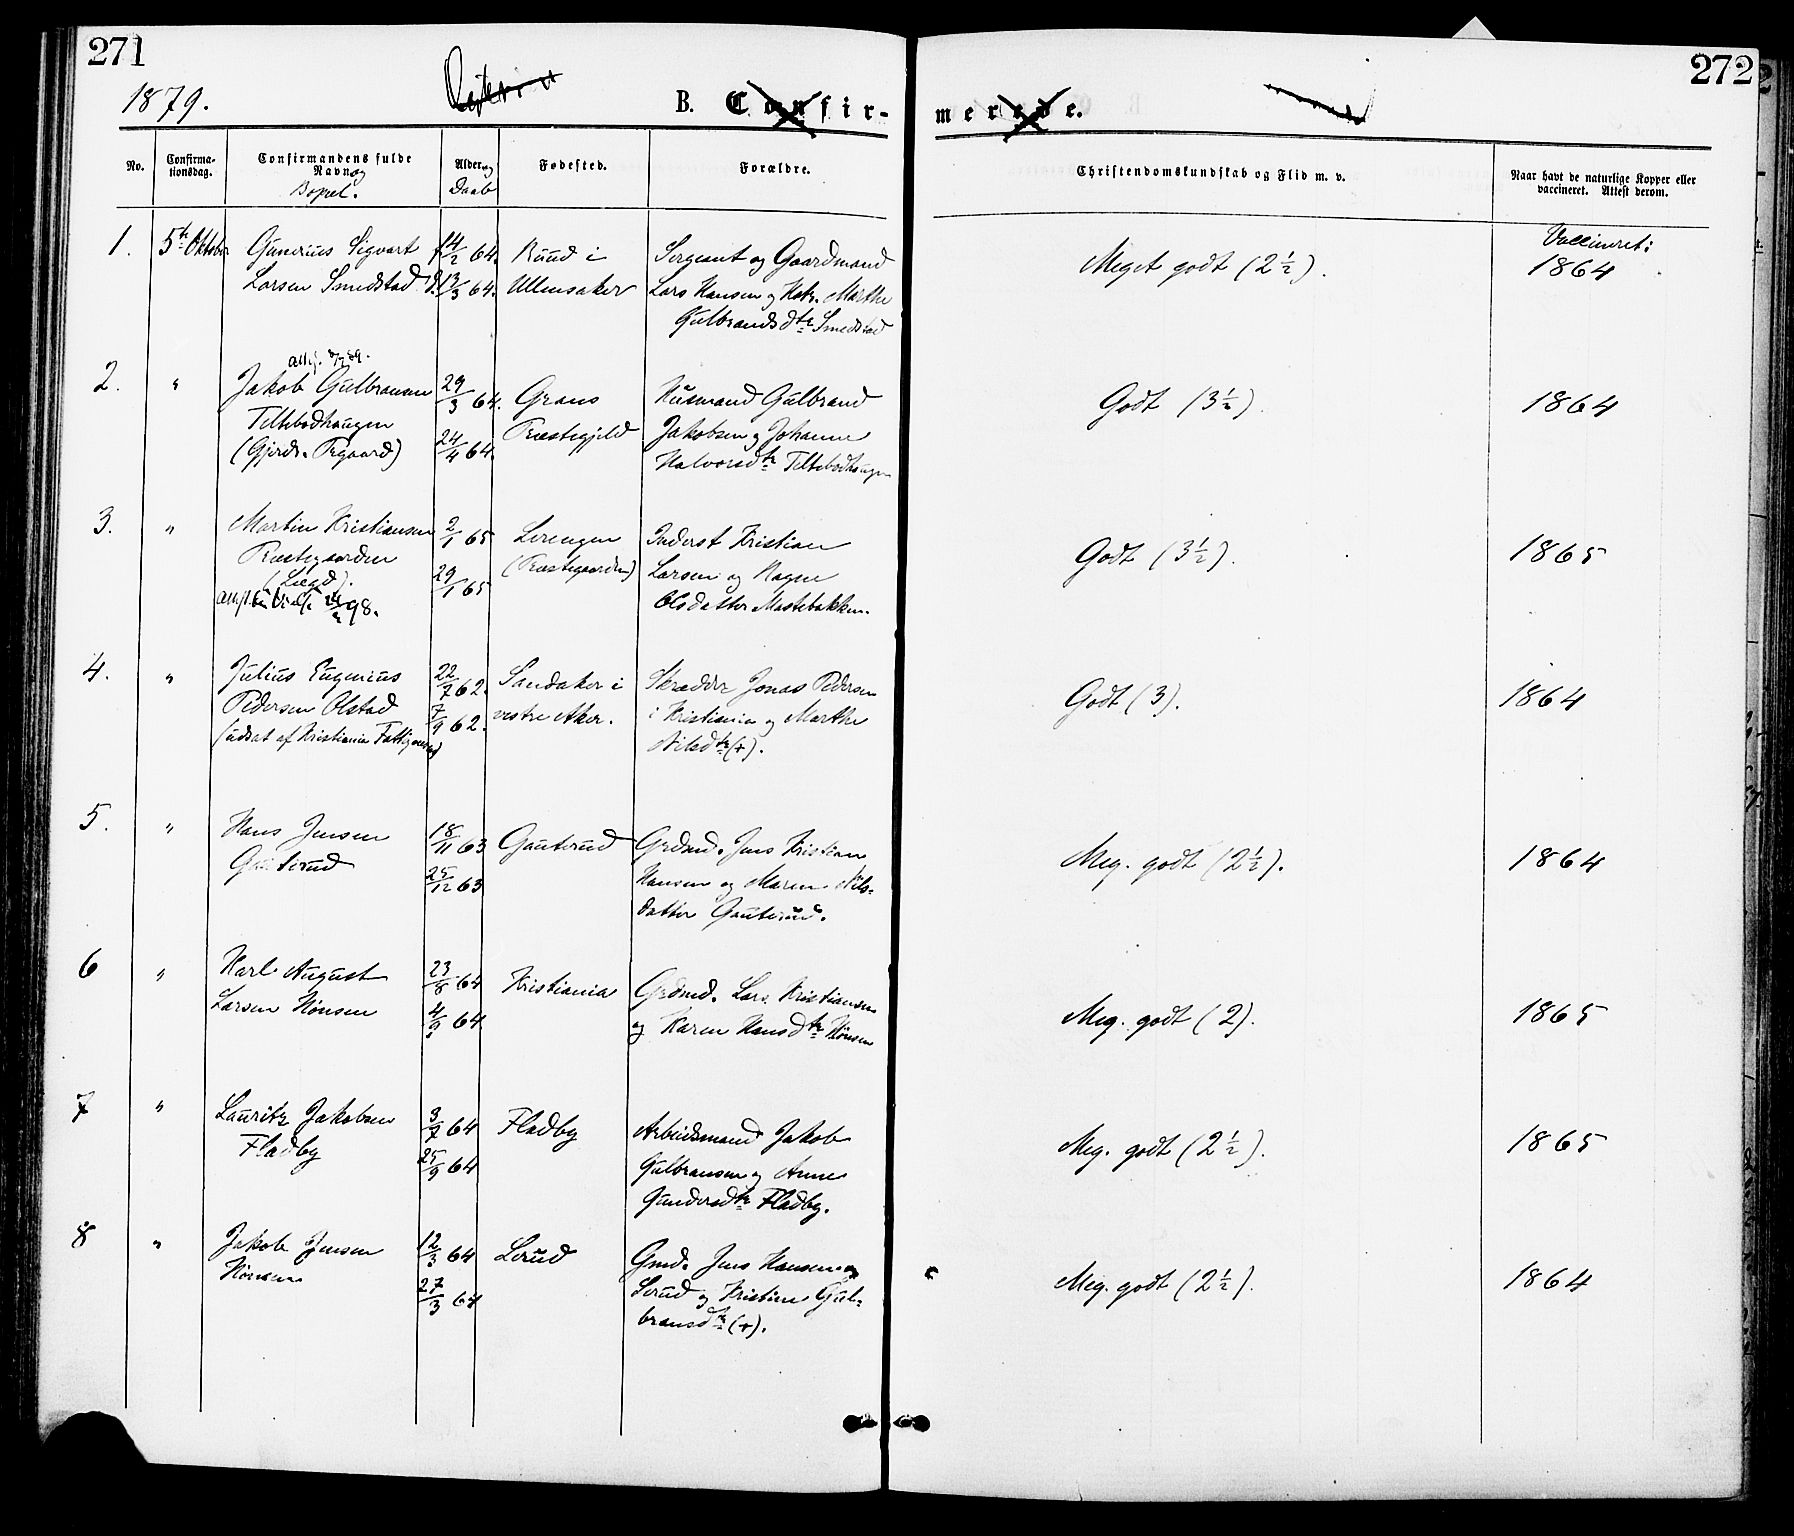 271
272
1879.
B. Confir-
merede.
No.
Confirma-
tionsdag.
Confirmandens fulde
Navn og
Bopæl.
Alder og
Daab
Fødested.
Forældre.
Christendomskundskab og Flid m. v.
Naar havt de naturlige Kopper eller
vaccineret. Attest derom.
1. 5te Oktober Gunerius Sigvart f. 14/2 64. Ruud i Sergeant og Gaardmand Meget godt (2 1/2). Vaccineret:
Larsen Smedstad d. 13/3 64. Ullensaker Lars Hansen og Marthe 1864
Gulbrandsdtr Smedstad
2. " Jakob Gulbransen 29/3 64. Grans Husmand Gulbrand Godt (3 1/2). 1864
Teltebodhaugen 24/4 64. Præstegjeld Jakobsen og Johanne
(Gjerdr. Prgaard) Halvorsdtr Teltebodhaugen
3. " Martin Kristiansen 2/1 65 Lerengen Inderst Kristian Godt (3 1/2). 1865
Præstegaarden 29/1 65 (Præstegaarden) Larsen og Ragne
(Lægd). Olsdatter Mastebakken.
98.
4. " Julius Eugenius 22/7 62. Sandaker i Skrædder Jonas Pedersen Godt (3). 1864
Pedersen Olstad 7/9 62. vestre Aker. i Kristiania og Marthe
(udsat af Kristiania Fattigvæsen) Nilsdtr (+).
5. " Hans Jensen 18/11 63 Gauterud Grdmd. Jens Kristian Meg. godt (2 1/2). 1864
Gauterud 25/12 63 Hansen og Maren Nils-
datter Gauterud.
6 " Karl August 23/8 64 Kristiania Grdmd. Lars Kristiansen Meg. godt (2). 1865
Larsen Hønsen 4/9 64 og Karen Hansdtr Hønsen
7 " Lauritz Jakobsen 3/7 64 Fladby Arbeidsmand Jakob Meg. godt (2 1/2). 1865
Fladby 25/9 64 Gulbransen og Anne
Gundersdtr Fladby.
8 " Jakob Jensen 12/3 64 Lerud Gmd. Jens Hansen Meg. godt (2 1/2). 1864
Hønsen 27/3 64 Lerud og Kristine Gul-
bransdtr (+).